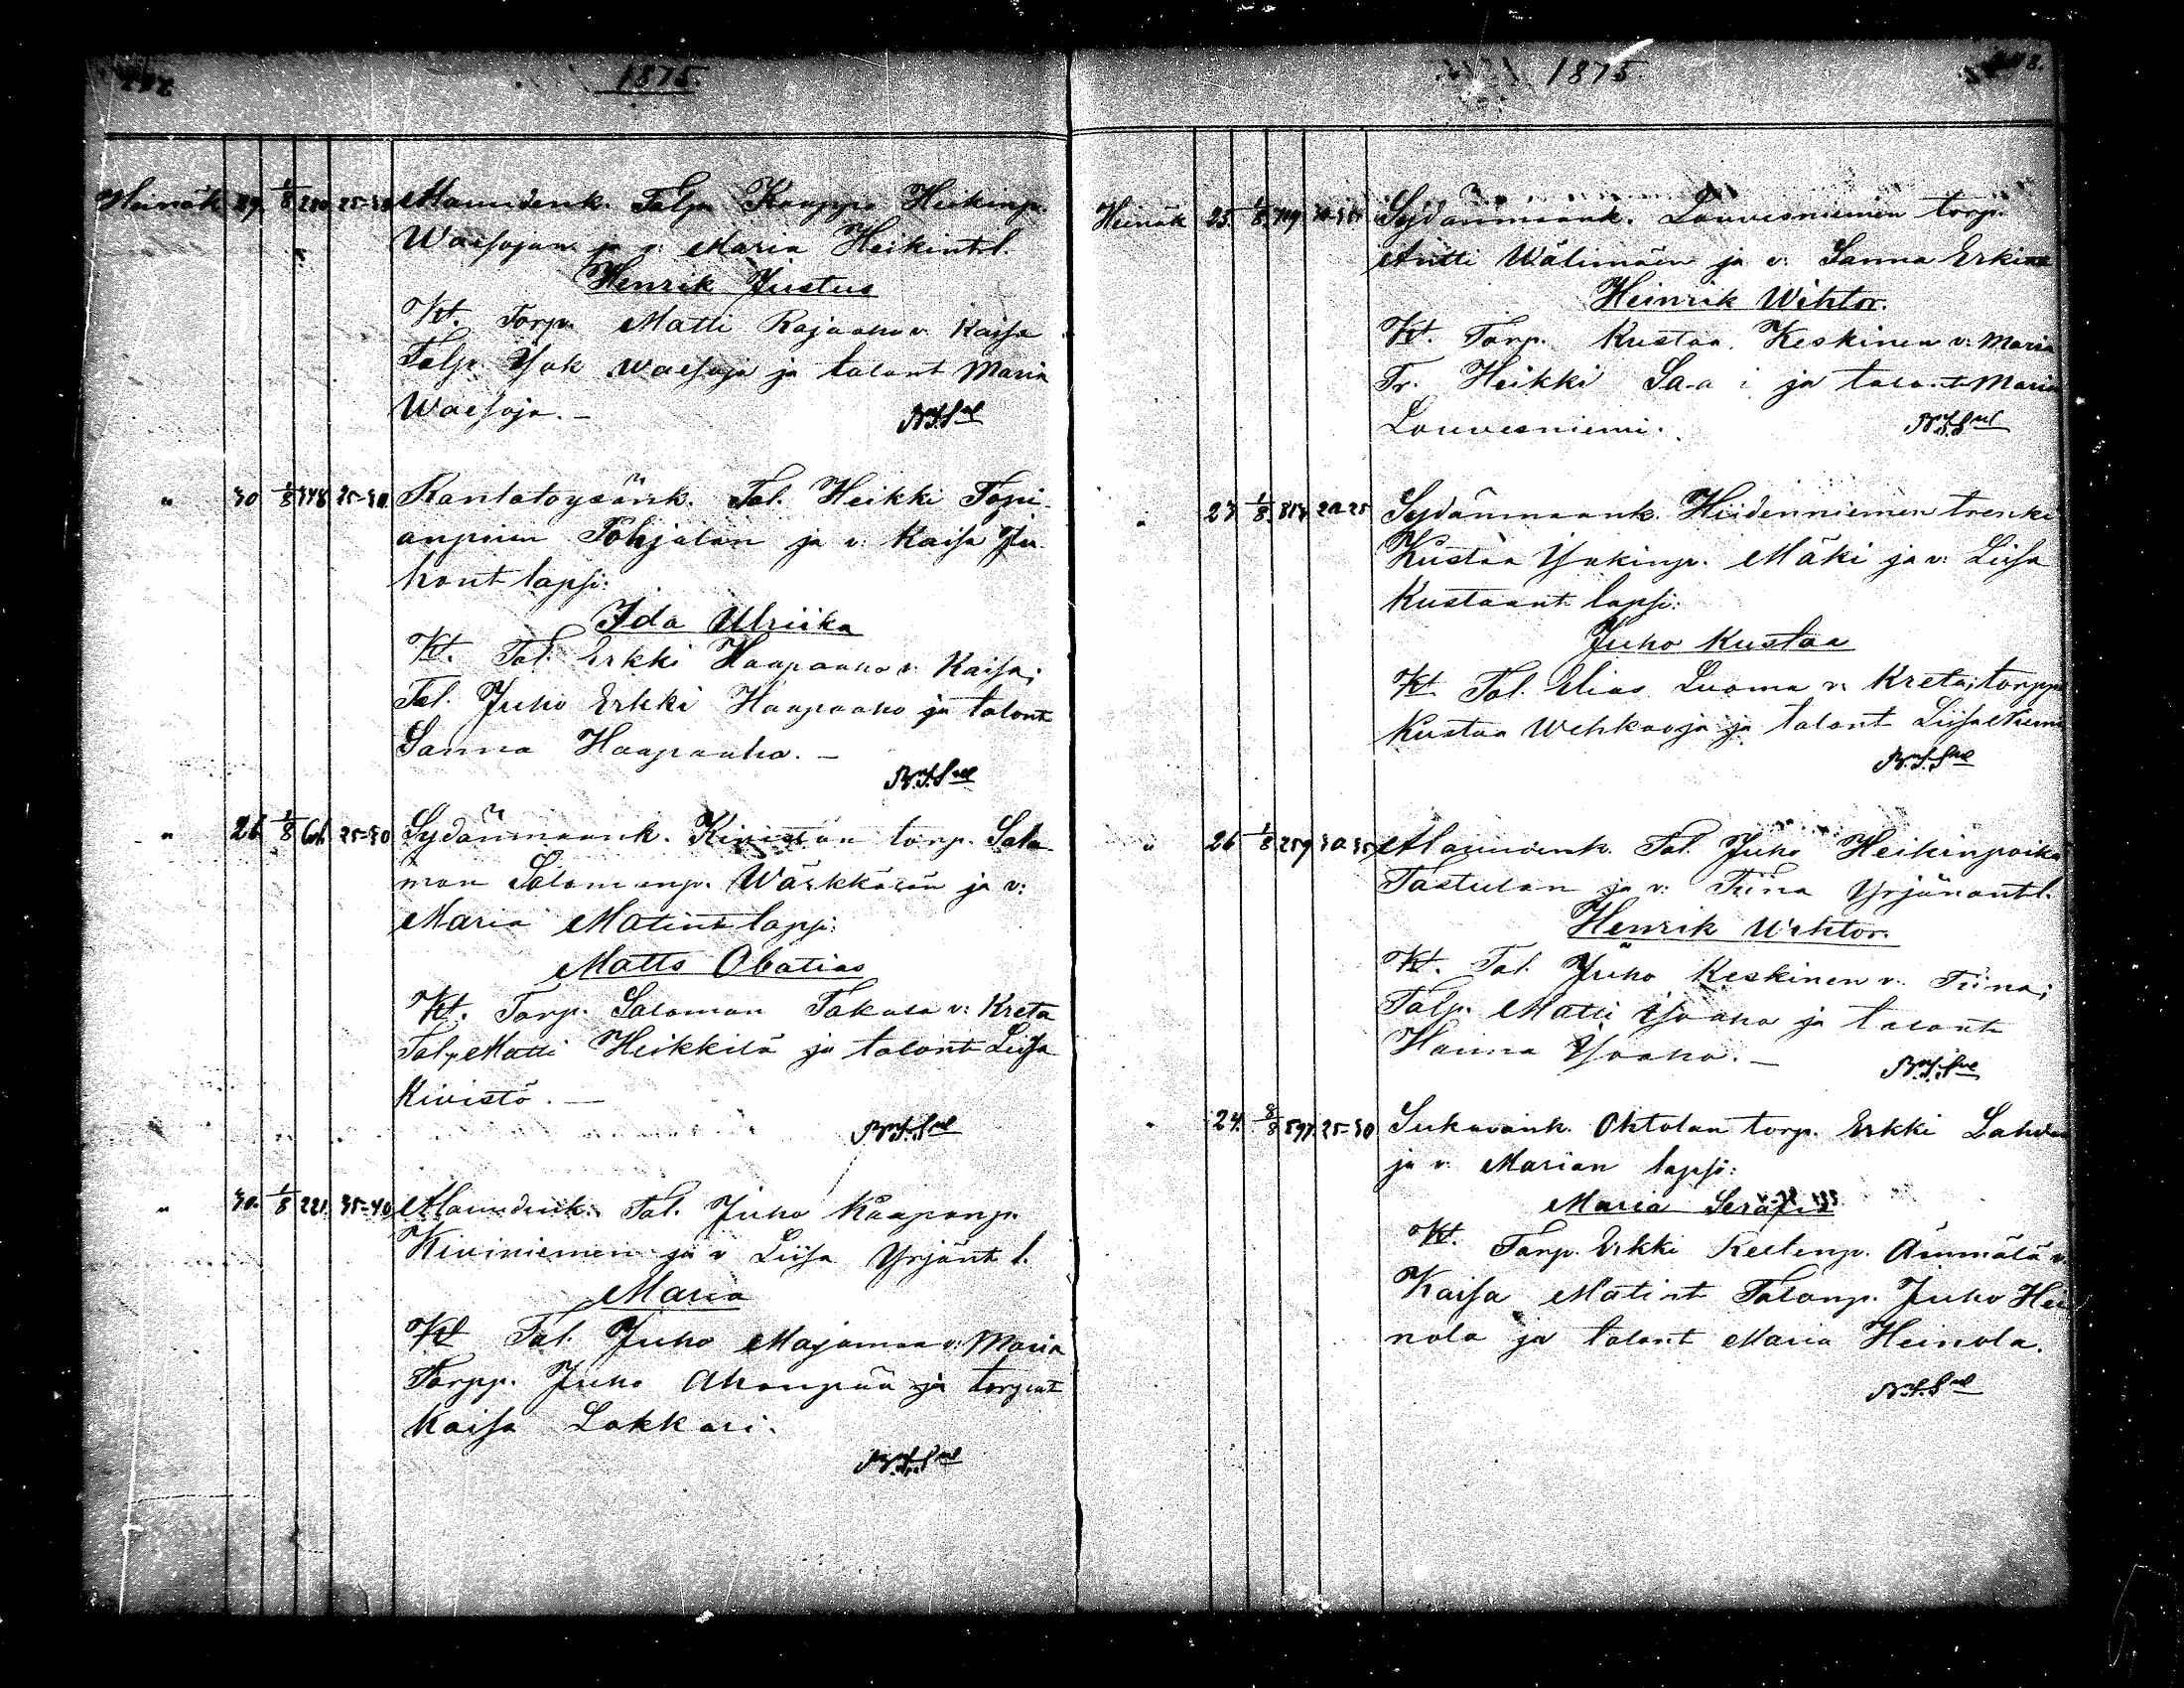 1875.
Heinäk 29. 1/8 250 25-30 Alamudenk. Talp Kauppo Heikinp.
Waesojan ja v: Maria Heikint l.
Henrik Justus
Kt. Torp. Matti Rajaaho v: Kaisa
Talp. Isak Waesoja ja talont Maria
Waesoja. –
" 30 1/8 348 25-30. Rantatöysänk. Tal. Heikki Topi-
anpoian Pohjalan ja v: Kaisa Ju
hont lapsi:
Ida Ulriika
Kt. Tal. Erkki Haapaaho v: Kaisa;
Tal. Juho Erkki Haapaaho ja talont
Sanna Haapaaho. –
" 26 1/8 25-30 Sydänmaank. Kivistön torp. Salo-
mon Salomonp. Wärkkärän ja v:
Maria Matint lapsi:
Matts Obatias
Kt. Torp. Salomon Takala v: Kreta
Talp. Matti Heikkilä ja talont Liisa
Kivistö. –
" 30. 1/8 221. 35-40 Alamudenk. Tal. Juho Kaaponp.
Kiviniemen ja v Liisa Yrjänt l.
Maria
Kt Tal. Juho Majamaa v: Maria
Torpp. Juho Ahonpää ja torpint
Kaisa Lakkari.
1875.
Heinäk 25. 1/8. 30-35 Sydänmaank. Louvesniemen torp.
Antti Wälimäen ja v: Sanna Erkint
Heinrik Wihtor.
Kt. Torp. Kustaa Keskinen v: Maria
Tr. Heikki ja talont Maria
Louvesniemi.
" 23 1/8. 20-25 Sydänmaank. Hiidenniemen trenki
Kustaa Isakinp. Mäki ja v: Liisa
Kustaant lapsi:
Juho Kustaa
Kt. Tal. Elias Luoma v: Kreta; torpp
Kustaa Wehkaoja ja talont Liisa Niemi
" 26 1/8 259 30-35 Alamudenk. Tal. Juho Heikinpoika
Tastulan ja v: Tiina Yrjänänt l.
Henrik Wihtor.
Kt. Tal. Juho Keskinen v: Tiina;
Talp. Matti Isoaho ja talont
Hanna Isoaho. –
" 24. 8/8 597. 25-30 Sukavank. Ohtolan torp. Erkki Lahden
ja v: Marian lapsi:
Maria Serafi
Kt. Torp. Erkki Ämmälä v
Kaisa Matint Talonp. Juho Hei
nola ja talont Maria Heinola.